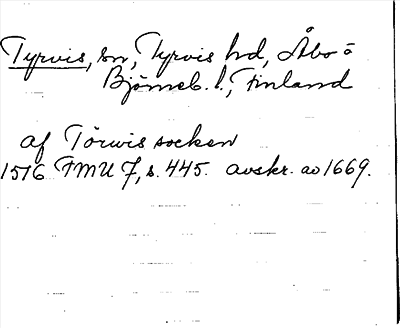 Tyrvis, sn, Tyrvis hd, Åbo o
Björneb. l., Finland
af Törwis socken
1516 FMU 7, s. 445. avskr. av 1669.